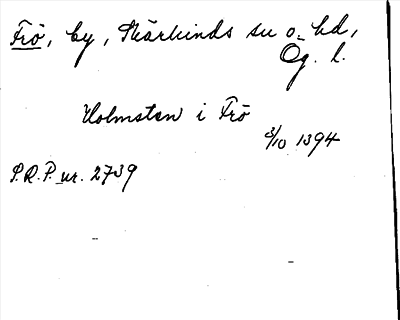 Frö, by, Skärkinds sn o. hd,
Ög. l.
Holmsten i Frö
3/10 1394
S.R.P. nr. 2739